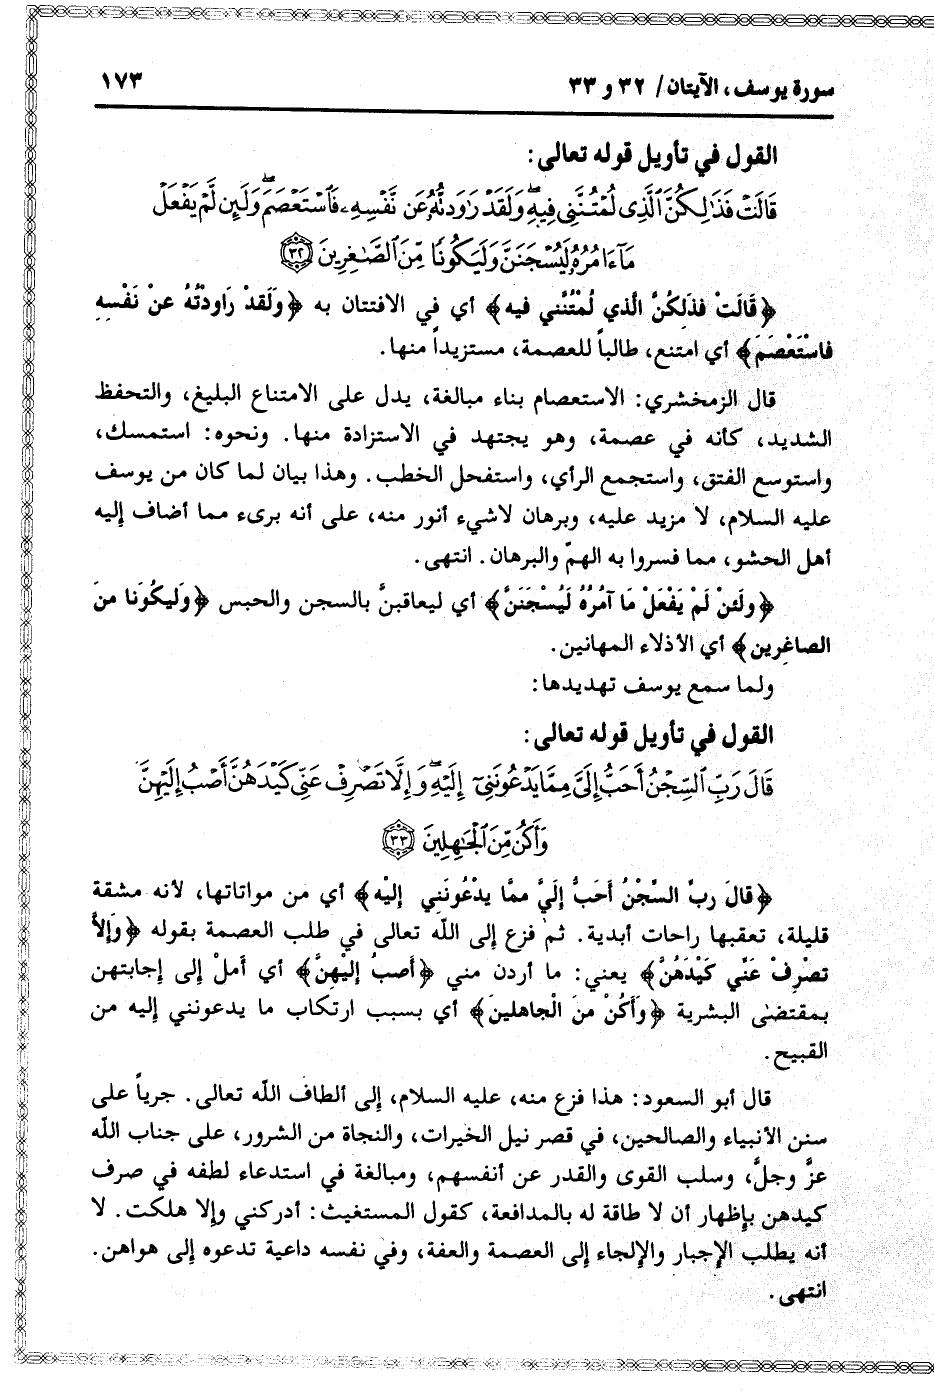 سورة يوسف، الآيتان/ ٣٢ و ٣٣
١٧٣
القول في تأويل قوله تعالى:
قَالَتْ فَذَٰلِكُنَّ ٱلَّذِى لُمْتُنَّنِى فِيهِ ۖ وَلَقَدْ رَٰوَدتُّهُۥ عَن نَّفْسِهِۦ فَٱسْتَعْصَمَ ۖ وَلَئِن لَّمْ يَفْعَلْ
مَآ ءَامُرُهُۥ لَيُسْجَنَنَّ وَلَيَكُونًا مِّنَ ٱلصَّٰغِرِينَ ٣٢
﴿قَالَتْ فَذَلِكُنَّ الَّذي لُمْتُنَّني فيه﴾ أي في الافتتان به ﴿وَلَقَدْ رَاودْتُهُ عنْ نَفْسه
فاسْتَعْصَمَ﴾ أي امتنع، طالباً للعصمة، مستزيداً منها.
قال الزمخشري: الاستعصام بناء مبالغة، يدل على الامتناع البليغ، والتحفظ
الشديد، كأنه في عصمة، وهو يجتهد في الاستزادة منها. ونحوه: استمسك،
واستوسع الفتق، واستجمع الرأي، واستفحل الخطب. وهذا بيان لما كان من يوسف
عليه السلام، لا مزيد عليه، وبرهان لاشيء أنور منه، على أنه بريء مما أضاف إليه
أهل الحشو، مما فسروا به الهمّ والبرهان. انتهى.
﴿ولَئنْ لَمْ يَفْعَلْ مَا آمُرُهُ لَيُسْجَنَنَّ﴾ أي ليعاقبنَّ بالسجن والحبس ﴿وَليكُونَا منَ
الصاغِرين﴾ أي الأذلاء المهانين.
ولما سمع يوسف تهديدها:
القول في تأويل قوله تعالى:
قَالَ رَبِّ ٱلسِّجْنُ أَحَبُّ إِلَىَّ مِمَّا يَدْعُونَنِىٓ إِلَيْهِ ۖ وَإِلَّا تَصْرِفْ عَنِّى كَيْدَهُنَّ أَصْبُ إِلَيْهِنَّ
وَأَكُن مِّنَ ٱلْجَٰهِلِينَ ٣٣
﴿قالَ ربِّ السِّجْنُ أَحَبُّ إِلَيَّ ممَّا يدْعُونَني إليْه﴾ أي من مواتاتها، لأنه مشقة
قليلة، تعقبها راحات أبدية. ثم فزع إلى اللّه تعالى في طلب العصمة بقوله ﴿وَإلاَّ
تصْرِفْ عَنِّي كَيْدَهُنَّ﴾ يعني: ما أردن مني ﴿أَصبُ إليْهِنَّ﴾ أي أملْ إلى إجابتهن
بمقتضى البشرية ﴿وَأَكُنْ منَ الْجاهلينَ﴾ أي بسبب ارتكاب ما يدعونني إليه من
القبيح.
قال أبو السعود: هذا فزع منه، عليه السلام، إلى ألطاف اللّه تعالى. جرياً على
سنن الأنبياء والصالحين، في قصر نيل الخيرات، والنجاة من الشرور، على جناب اللّه
عزَّ وجلَّ، وسلب القوى والقدر عن أنفسهم، ومبالغة في استدعاء لطفه في صرف
كيدهن بإظهار أن لا طاقة له بالمدافعة، كقول المستغيث: أدركني وإلا هلكت. لا
أنه يطلب الإجبار والإلجاء إلى العصمة والعفة، وفي نفسه داعية تدعوه إلى هواهن.
انتهى.